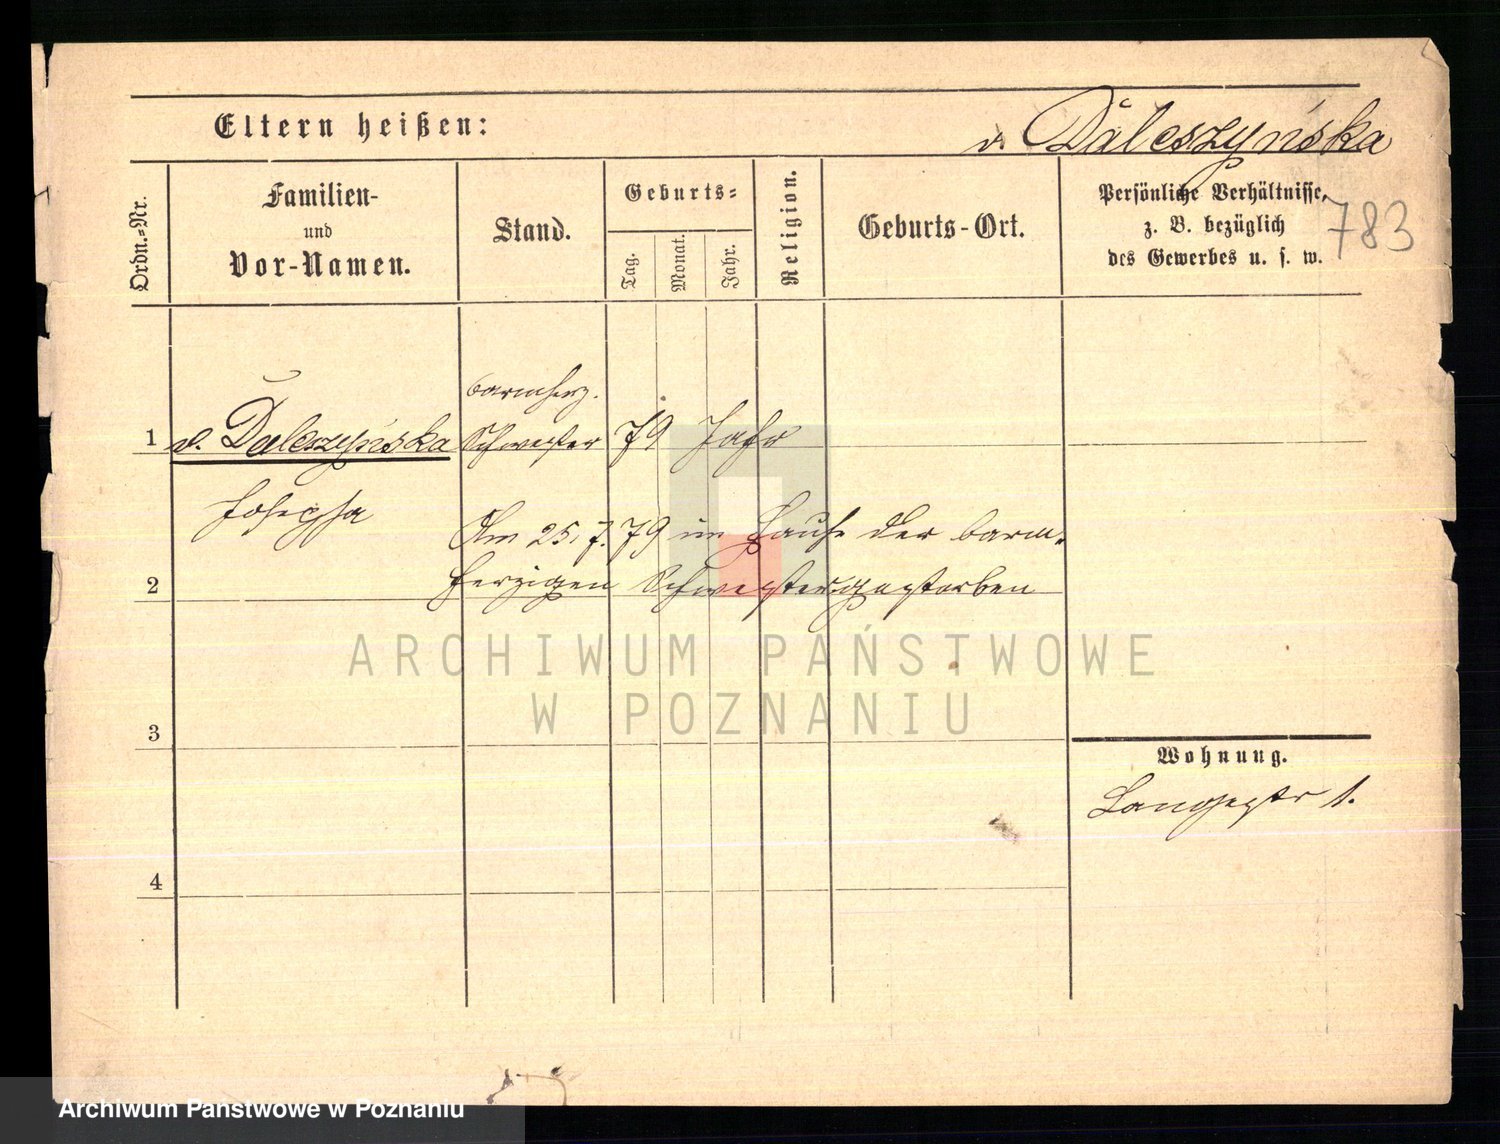 Eltern heißen:
v. Daleszyńska
Ordn.-Nr.
Familien-
und
Vor-Namen.
Stand.
Geburts-
Tag.
Monat.
Jahr.
Religion.
Geburts-Ort.
Persönliche Verhältnisse,
z. B. bezüglich
des Gewerbes u. s. w.
783
barmherz.
1 v. Daleszyńska Schwester 79 Jahr
Josepha
Am 25. 7. 79 im Hause der barm-
2 herzigen Schwestern gestorben
ARCHIWUM PAŃSTWOWE
W POZNANIU
3
Wohnung.
Langestr 1.
4
Archiwum Państwowe w Poznaniu